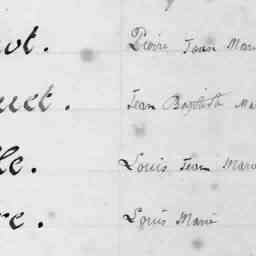 ot. Pierre Jean Marie
uet. Jean Baptiste Ma
lle. Louis Jean Marie
re. Louis Marie